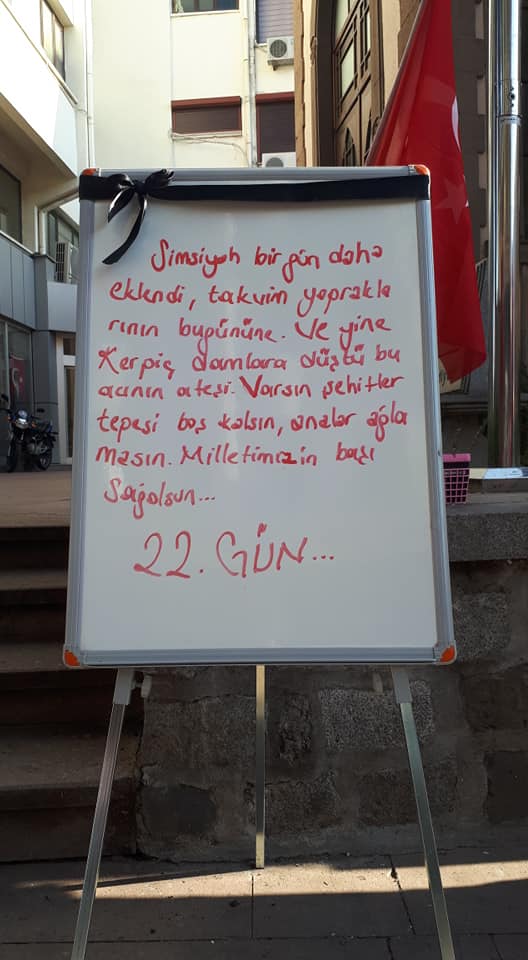 Simsiyah bir gün daha
eklendi, takvim yaprakla
rının bugününe. Ve yine
Kerpiç damlara düştü bu
acının ateşi. Varsın şehitler
tepesi boş kalsın, analar ağla
masın. Milletimizin başı
Sağolsun...
22. GÜN...